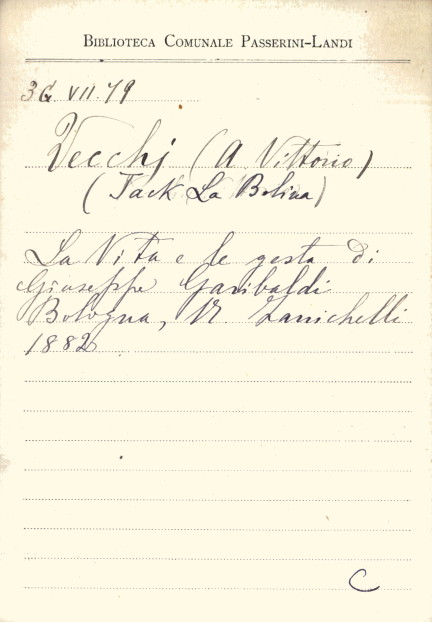 BIBLIOTECA COMUNALE PASSERINI-LANDI
3G. VII. 79
Vecchj (A Vittorio)
(Jack La Bolina)
La Vita e le gesta di
Giuseppe Garibaldi
Bologna, N. Zanichelli
1882
C